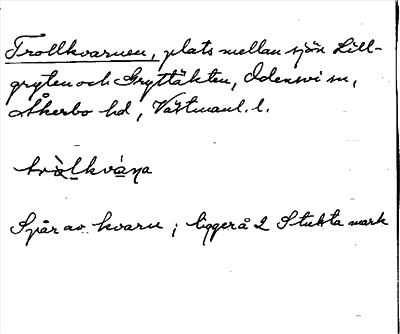 Trollkvarnen, plats mellan sjön Lill-
gryten och Gryttäkten, Odensvi sn,
Åkerbo hd, Västmanl. l.
tròlkvána
Spår av kvarn; ligger å 2 Stubta mark